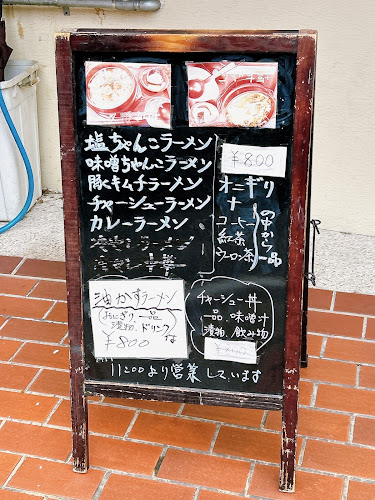 塩ちゃんこラーメン
味噌ちゃんこラーメン
豚キムチラーメン
チャーシューラーメン
カレーラーメン
¥800
オーギリ
ナ
コーヒー
紅茶
ウーロン茶
の中から一品
油かすラーメン
おにぎり 一品
漬物、ドリンク
な
¥800
チャーシュー丼
一品 味噌汁
漬物、飲み物
11:00より営業しています